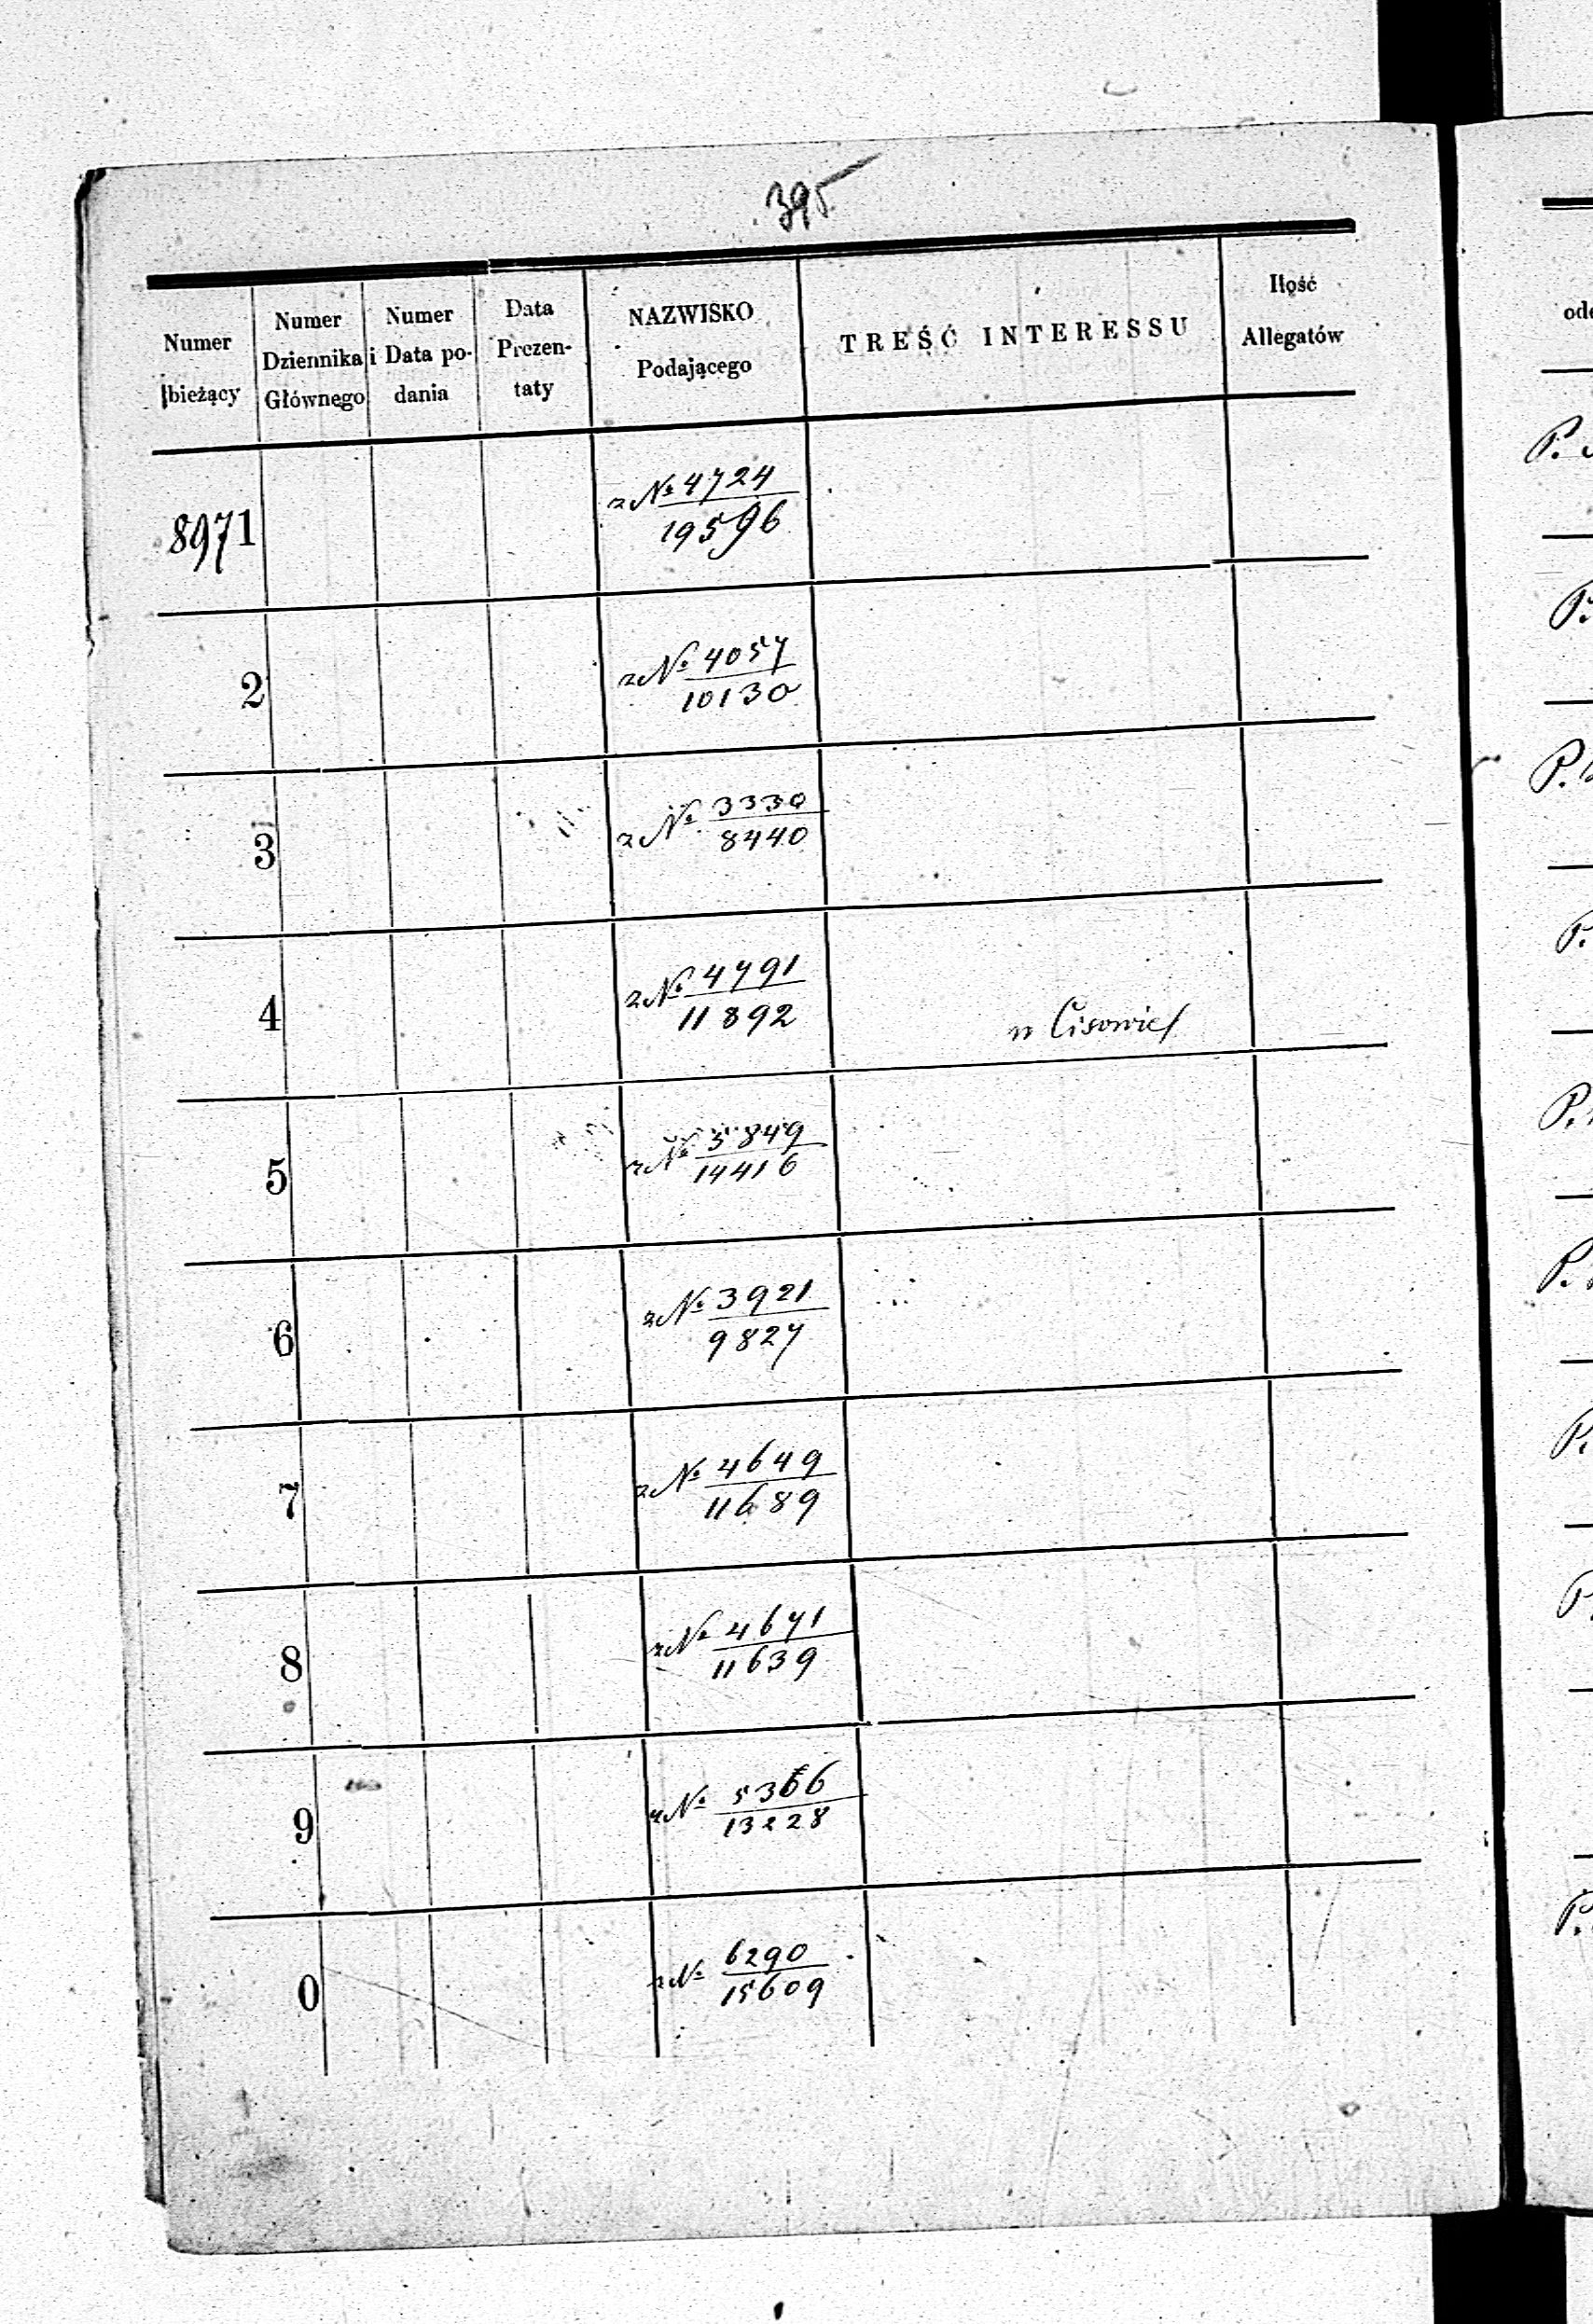 395
Numer bieżący
Numer Dziennika Głównego
Numer i Data podania
Data Prezentaty
NAZWISKO Podającego
TREŚĆ INTERESSU
Ilość Allegatów
8971
z № 4724
19596
2
z № 4057
10130
3
z № 3330
8440
4
z № 4791
11892
w Cisowie
5
z № 5849
14416
6
z № 3921
9827
7
z № 4649
11689
8
z № 4671
11639
9
z № 5366
13228
0
z № 6290
15609
P.
P.
P.
P.
P.
P.
P.
P.
P.